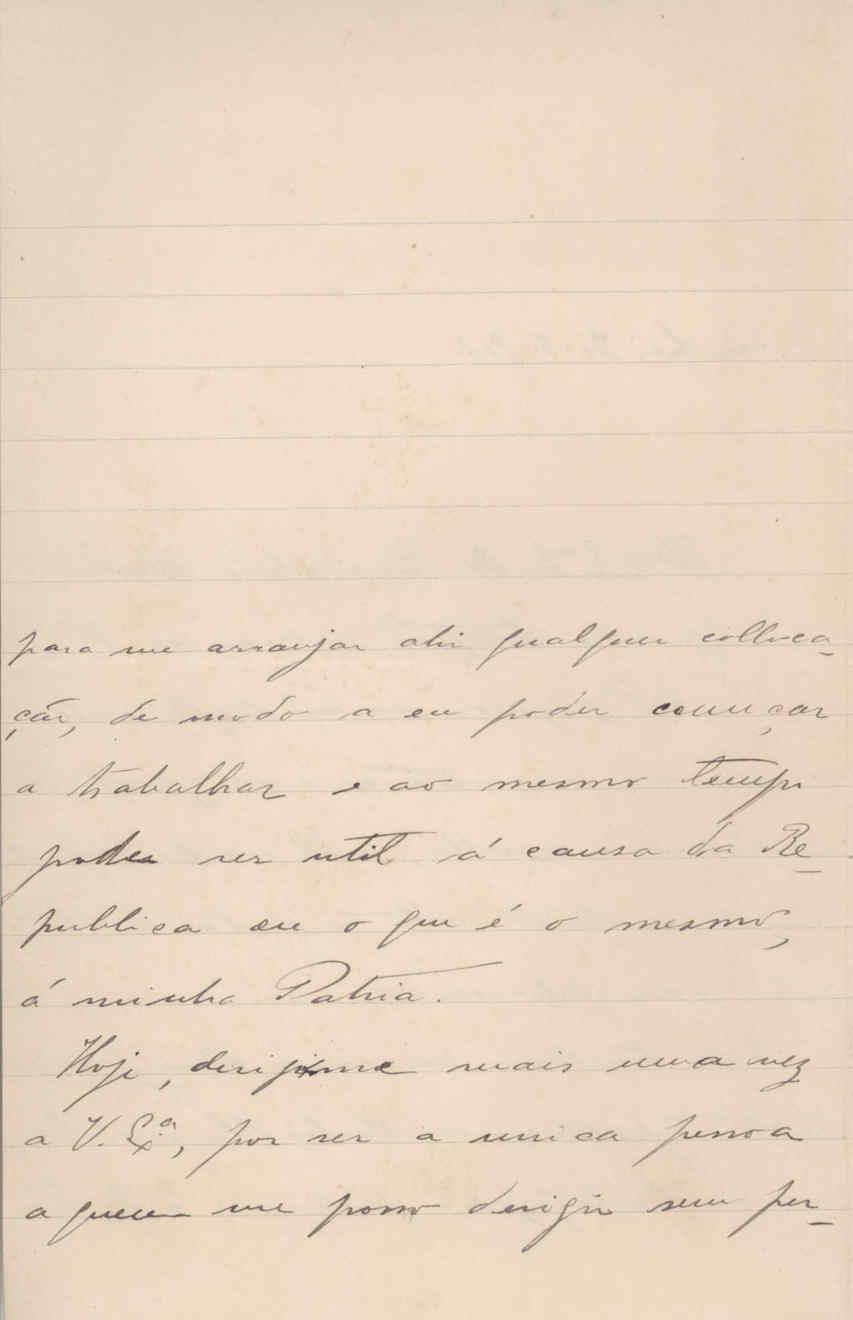 para me arranjar ahi qualquer colloca-
ção, de modo a eu poder começar
a trabalhar e ao mesmo tempo
poder ser util á causa da Re-
publica ou o que é o mesmo,
á minha Patria.
Hoje, dirijo-me mais uma vez
a V. Ex.ª, por ser a unica pessoa
a quem me posso dirigir sem per-